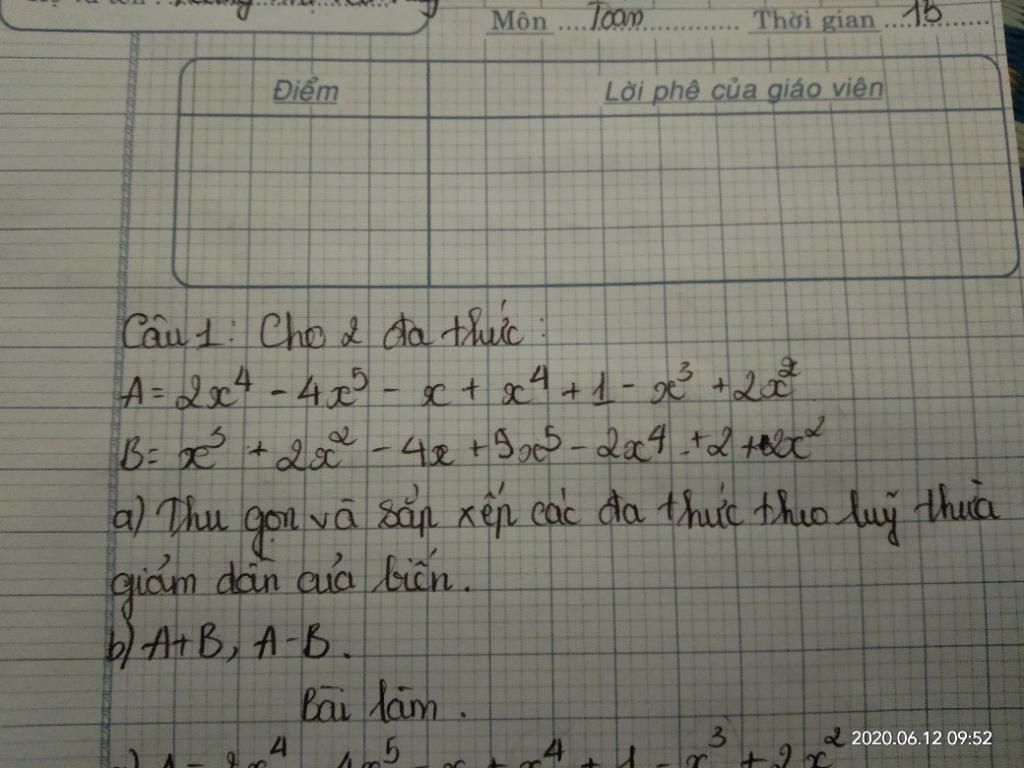 Môn ....Toán................ Thời gian ...15.......
Điểm
Lời phê của giáo viên
Câu 1: Cho 2 đa thức:
A= 2x⁴ - 4x⁵ - x + x⁴ + 1 - x³ + 2x²
B= x³ + 2x² - 4x + 5x⁵ - 2x⁴ + 2 + 2x²
a) Thu gọn và sắp xếp các đa thức theo luỹ thừa
giảm dần của biến.
b) A+B, A-B.
Bài làm.
x⁴ + 1 - x³ + 2x²
2020.06.12 09:52